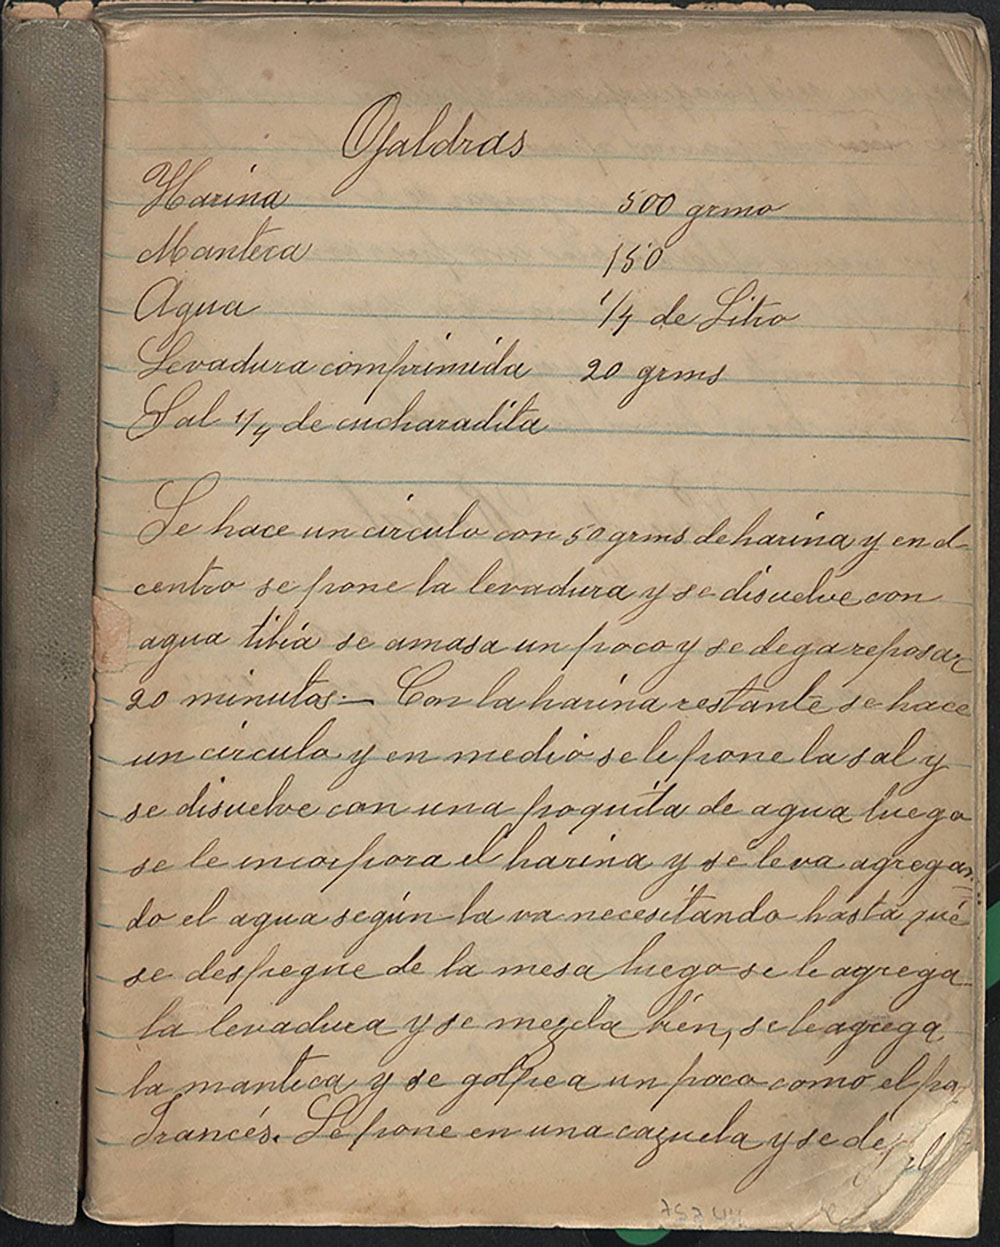 Ojaldras
Harina 500 grmo
Manteca 150
Agua 1/4 de Litro
Levadura comprimida 20 grms
Sal 1/4 de cucharadita
Se hace un circulo con 50 grms de harina y en el
centro se pone la levadura y se disuelve con
agua tibia se amasa un poco y se dega reposar
20 minutos.— Con la harina restante se hace
un circulo y en medio se le pone la sal y
se disuelve con una poquita de agua luego
se le incorpora el harina y se leva agregan-
do el agua según la va necesitando hasta que
se despegue de la mesa luego se le agrega
la levadura y se mezcla bien, se le agrega
la manteca y se golpea un poco como el pa
Francés. Se pone en una cazuela y se de